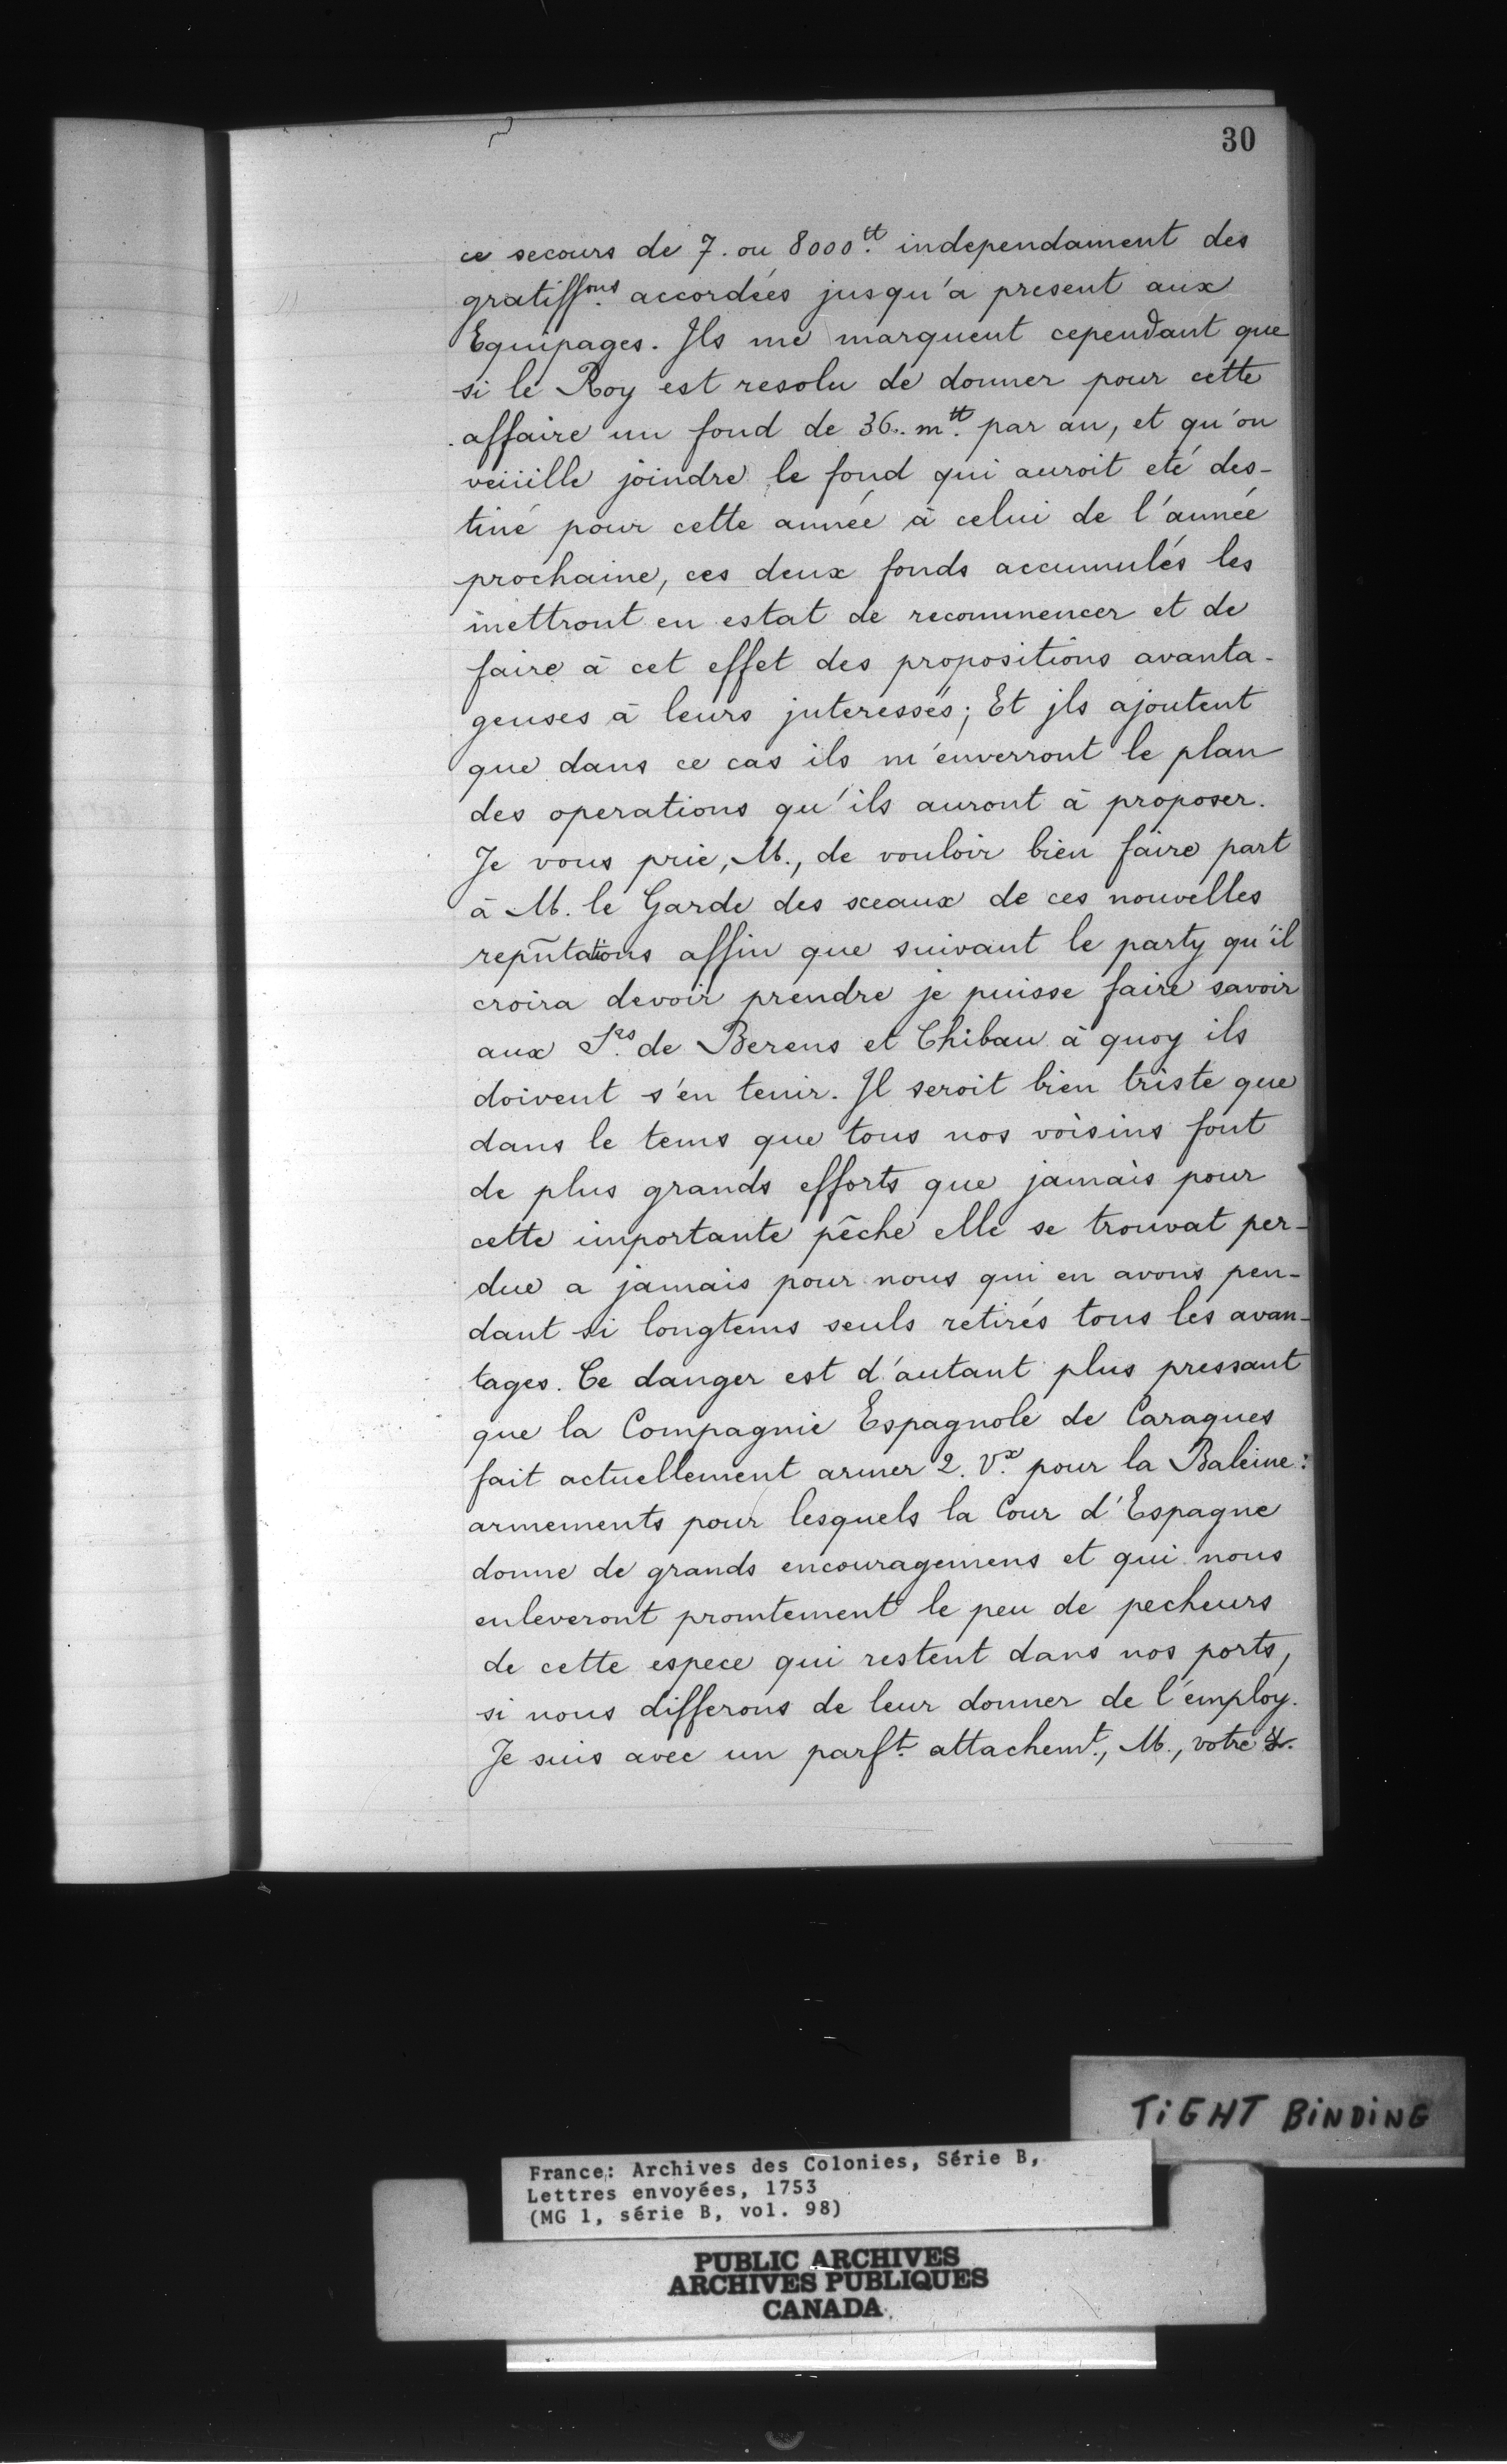 30
ce secours de 7. ou 8000.tt independament des
gratiffons. accordées jusqu'a present aux
Equipages. Ils me marquent cependant que
si le Roy est resolu de donner pour cette
affaire un fond de 36. m.tt par an, et qu'on
veüille joindre le fond qui auroit eté des-
tiné pour cette année à celui de l'année
prochaine, ces deux fonds accumulés les
mettront en estat de recommencer et de
faire à cet effet des propositions avanta-
geuses à leurs jnteressés; Et jls ajoutent
que dans ce cas ils m'enverront le plan
des operations qu'ils auront à proposer.
Je vous prie, M., de vouloir bien faire part
à M. le Garde des sceaux de ces nouvelles
repñtations affin que suivant le party qu'il
croira devoir prendre je puisse faire savoir
aux Srs. de Berens et Chibau à quoy ils
doivent s'en tenir. Il seroit bien triste que
dans le tems que tous nos voisins font
de plus grands efforts que jamais pour
cette importante pêche elle se trouvat per-
due a jamais pour nous qui en avons pen-
dant si longtems seuls retirés tous les avan-
tages. Ce danger est d'autant plus pressant
que la Compagnie Espagnole de Caraques
fait actuellement armer 2. V.x pour la Baleine:
armements pour lesquels la Cour d'Espagne
donne de grands encouragemens et qui nous
enleveront promtement le peu de pecheurs
de cette espece qui restent dans nos ports,
si nous differons de leur donner de l'employ.
Je suis avec un parft. attachemt., M., votre &.
TiGHT BiNDiNG
France: Archives des Colonies, Série B,
Lettres envoyées, 1753
(MG 1, série B, vol. 98)
PUBLIC ARCHIVES
ARCHIVES PUBLIQUES
CANADA